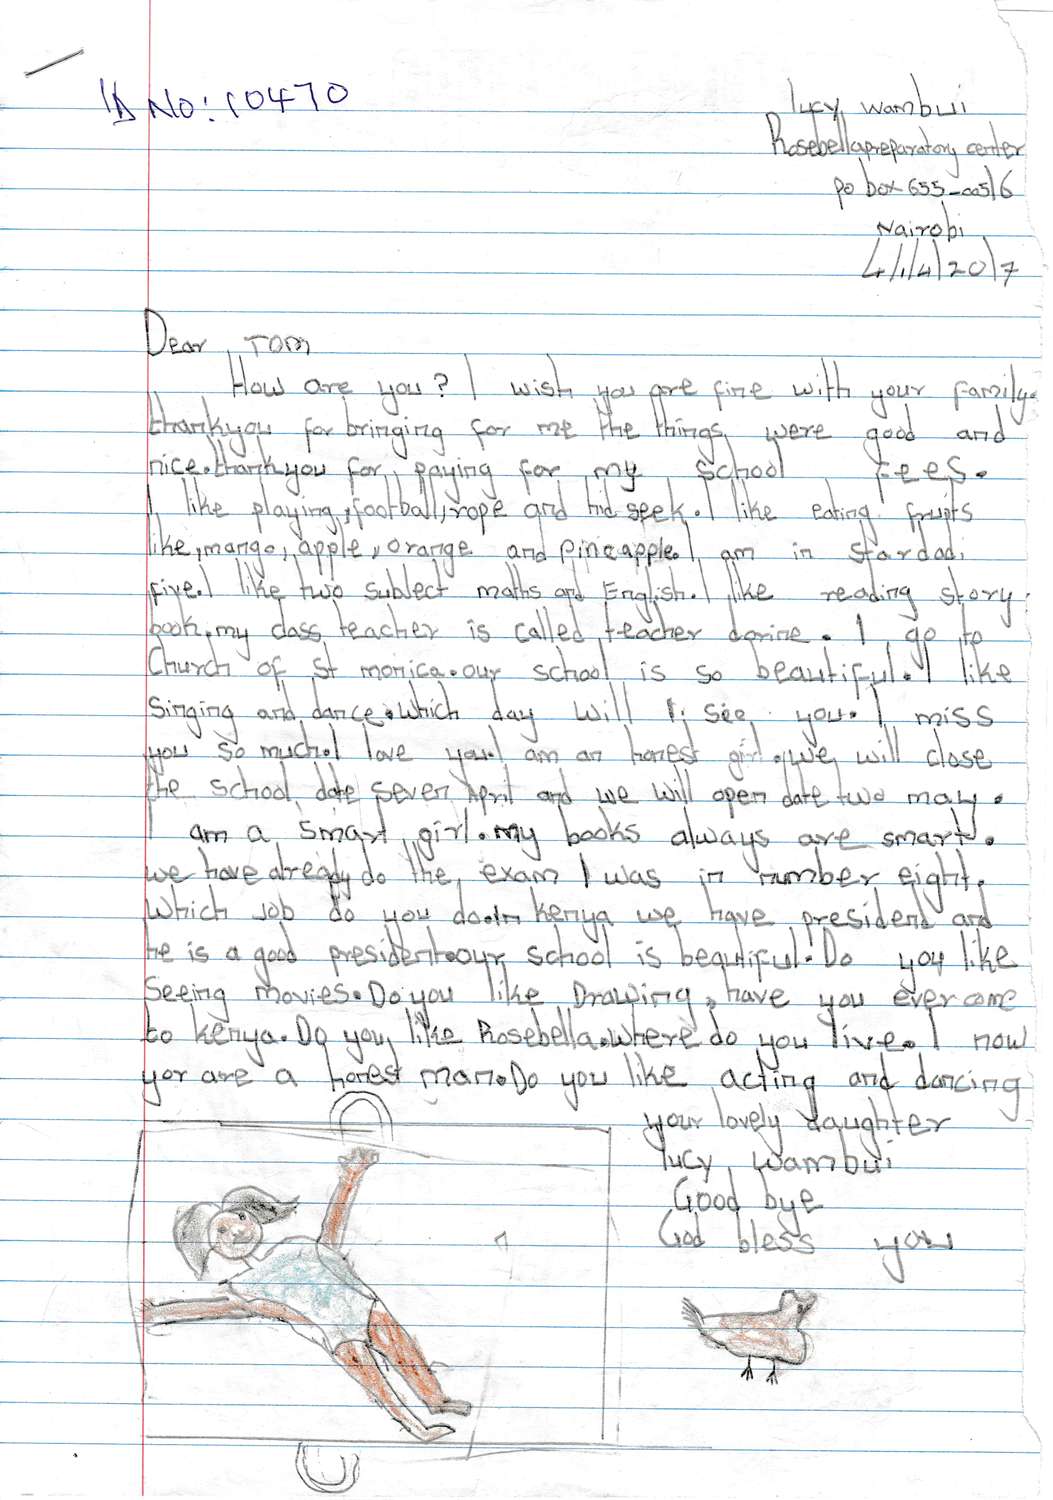 ID No: 10470
lucy wambui
Rosebellapreparatory center
po box 655-00516
Nairobi
4/1/4/2017
Dear Tom
How are you? I wish you are fine with your family.
thankyou for bringing for me the things were good and
nice.thankyou for, paying for my school fees.
I like playing,football,rope and hid seek.I like eating fruits
like,mango,apple,orange and pineapple.I am in stardadi
five.I like two subject maths and English.I like reading story
book.my class teacher is called teacher dorine. I go to
Church of st monica.our school is so beautiful.I like
singing and dance.which day will I see you.I miss
you so much.I love you.I am an honest girl.we will close
the school date seven April and we will open date two may.
I am a smart girl.my books always are smart.
we have already do the exam I was in number eight.
Which job do you do.In kenya we have president and
he is a good president.our school is beautiful.Do you like
Seeing movies.Do you like Drawing, have you ever come
to kenya.Do you like Rosebella.where do you live.I now
yor are a honest man.Do you like acting and dancing
your lovely daughter
lucy wambui
Good bye
God bless you